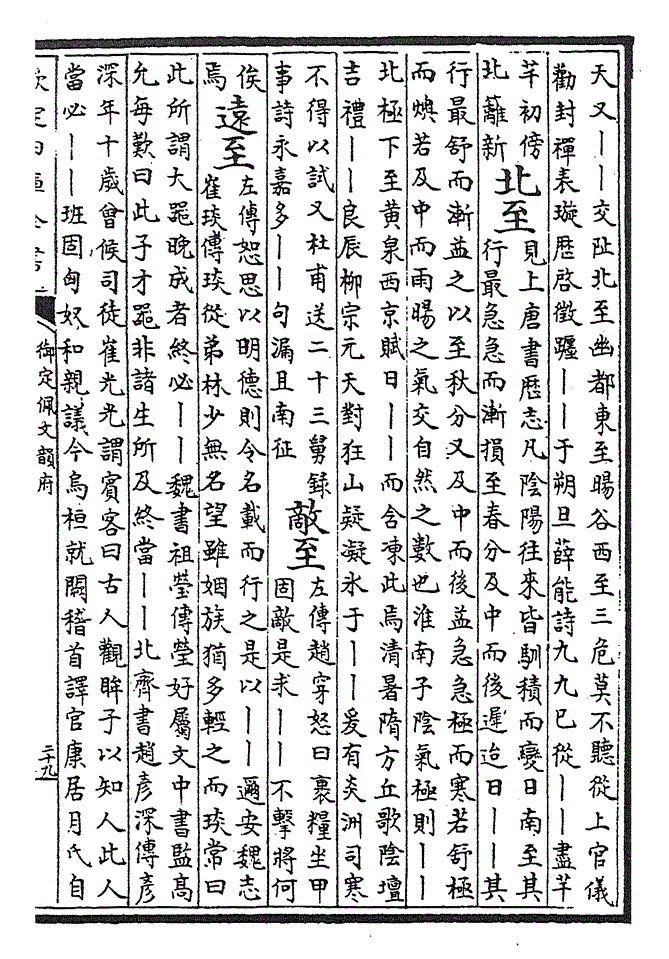 天又丨丨交阯北至幽都東至暘谷西至三危莫不聽從上官儀
勸封禪表璇歴啓徵躔丨丨于朔旦薛能詩九九已從丨丨盡芊
芊初傍
北籬新
北至
見上唐書歴志凡陰陽往來皆馴積而變日南至其
行最急急而漸損至春分及中而後遲迨日丨丨其
行最舒而漸益之以至秋分又及中而後益急急極而寒若舒極
而燠若及中而雨暘之氣交自然之數也淮南子陰氣極則丨丨
北極下至黄泉西京賦日丨丨而含凍此焉清暑隋方丘歌陰壇
吉禮丨丨良辰柳宗元天對狂山疑凝氷于丨丨爰有炎洲司寒
不得以試又杜甫送二十三舅録
事詩永嘉多丨丨句漏且南征
敵至
左傳趙穿怒曰裹糧坐甲
固敵是求丨丨不擊將何
俟
焉
遠至
左傳恕思以明德則令名載而行之是以丨丨邇安魏志
崔琰傳琰從弟林少無名望雖姻族猶多輕之而琰常曰
此所謂大噐晚成者終必丨丨魏書祖瑩傳瑩好屬文中書監高
允每歎曰此子才噐非諸生所及終當丨丨北齊書趙彦深傳彦
深年十歳曾候司徒崔光光謂賓客曰古人觀眸子以知人此人
當必丨丨班固匈奴和親議今烏桓就闕稽首譯官康居月氏自
御定佩文韻府
二十九